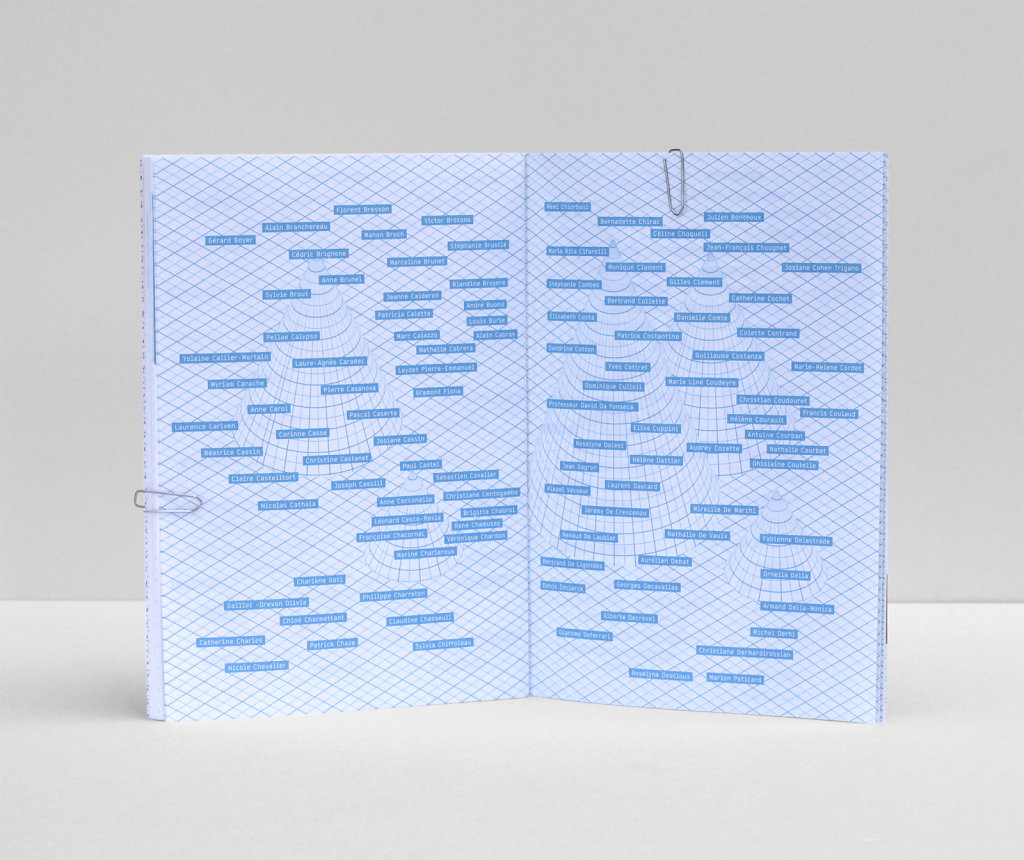 Florent Bresson
Victor Brotons
Alain Branchereau
Manon Broch
Gérard Boyer
Stéphanie Brustlé
Cédric Brignone
Marceline Brunet
Anne Bruhel
Blandine Bruyère
Sylvie Brout
Jeanne Calderon
André Buono
Patricia Caietta
Louis Burle
Peliae Calypso
Marc Caiazzo
Alain Cabras
Nathalie Cabrera
Yolaine Callier-Mortain
Laure-Agnès Caradec
Leydet Pierre-Emmanuel
Myriam Carache
Pierre Casanova
Gramont Fiona
Anne Carol
Pascal Caserta
Laurence Cariven
Corinne Casse
Josiane Cassin
Béatrice Cassin
Christine Castanet
Paul Castel
Claire Castelltort
Sébastien Cavalier
Joseph Casulli
Christiane Centogambe
Nicolas Cathala
Anne Cecconello
Brigitte Chabrol
Léonard Cesco-Resia
René Chamussy
Françoise Chatornac
Véronique Chardon
Marine Charleroux
Charlène Goti
Philippe Charreton
Gaillot -Drevon Olivia
Chloé Charmettant
Claudine Chasseuil
Catherine Charles
Patrick Chaze
Sylvia Chiffoleau
Nicole Chevalier
Rémi Chiorboli
Bernadette Chirac
Julien Bonthoux
Céline Choquell
Maria Rina Cifarelli
Jean-François Chougnet
Monique Clement
Josiane Cohen Trigano
Stéphanie Combes
Gilles Clement
Bertrand Collette
Catherine Cochet
Elisabeth Costa
Danielle Comte
Patrick Costantino
Colette Contrand
Sandrine Cotton
Guillaume Costanza
Yves Cottret
Marie-Helene Cordet
Dominique Culioli
Marie Line Coudeyre
Professeur David Da Fonseca
Christian Coudouret
Francis Coulaud
Elisa Cuppini
Hélène Courault
Antoine Courban
Roselyne Dalest
Audrey Cozette
Nathalie Courbet
Jean Dagron
Hélène Dattler
Ghislaine Coutelle
Laurent Daycard
Mikael Vasseur
Jérémy De Crescenzo
Mireille De Marchi
Renaud De Laubier
Nathalie De Vaulx
Fabienne Delestrade
Bertrand De Ligondès
Aurélien Debat
Denis Declerck
Georges Decavallas
Ornella Delia
Alberte Decrevel
Armand Della-Monica
Giacomo Deferrari
Michel Derhi
Christiane Dermardirossian
Roselyne Descloux
Marion Peticard